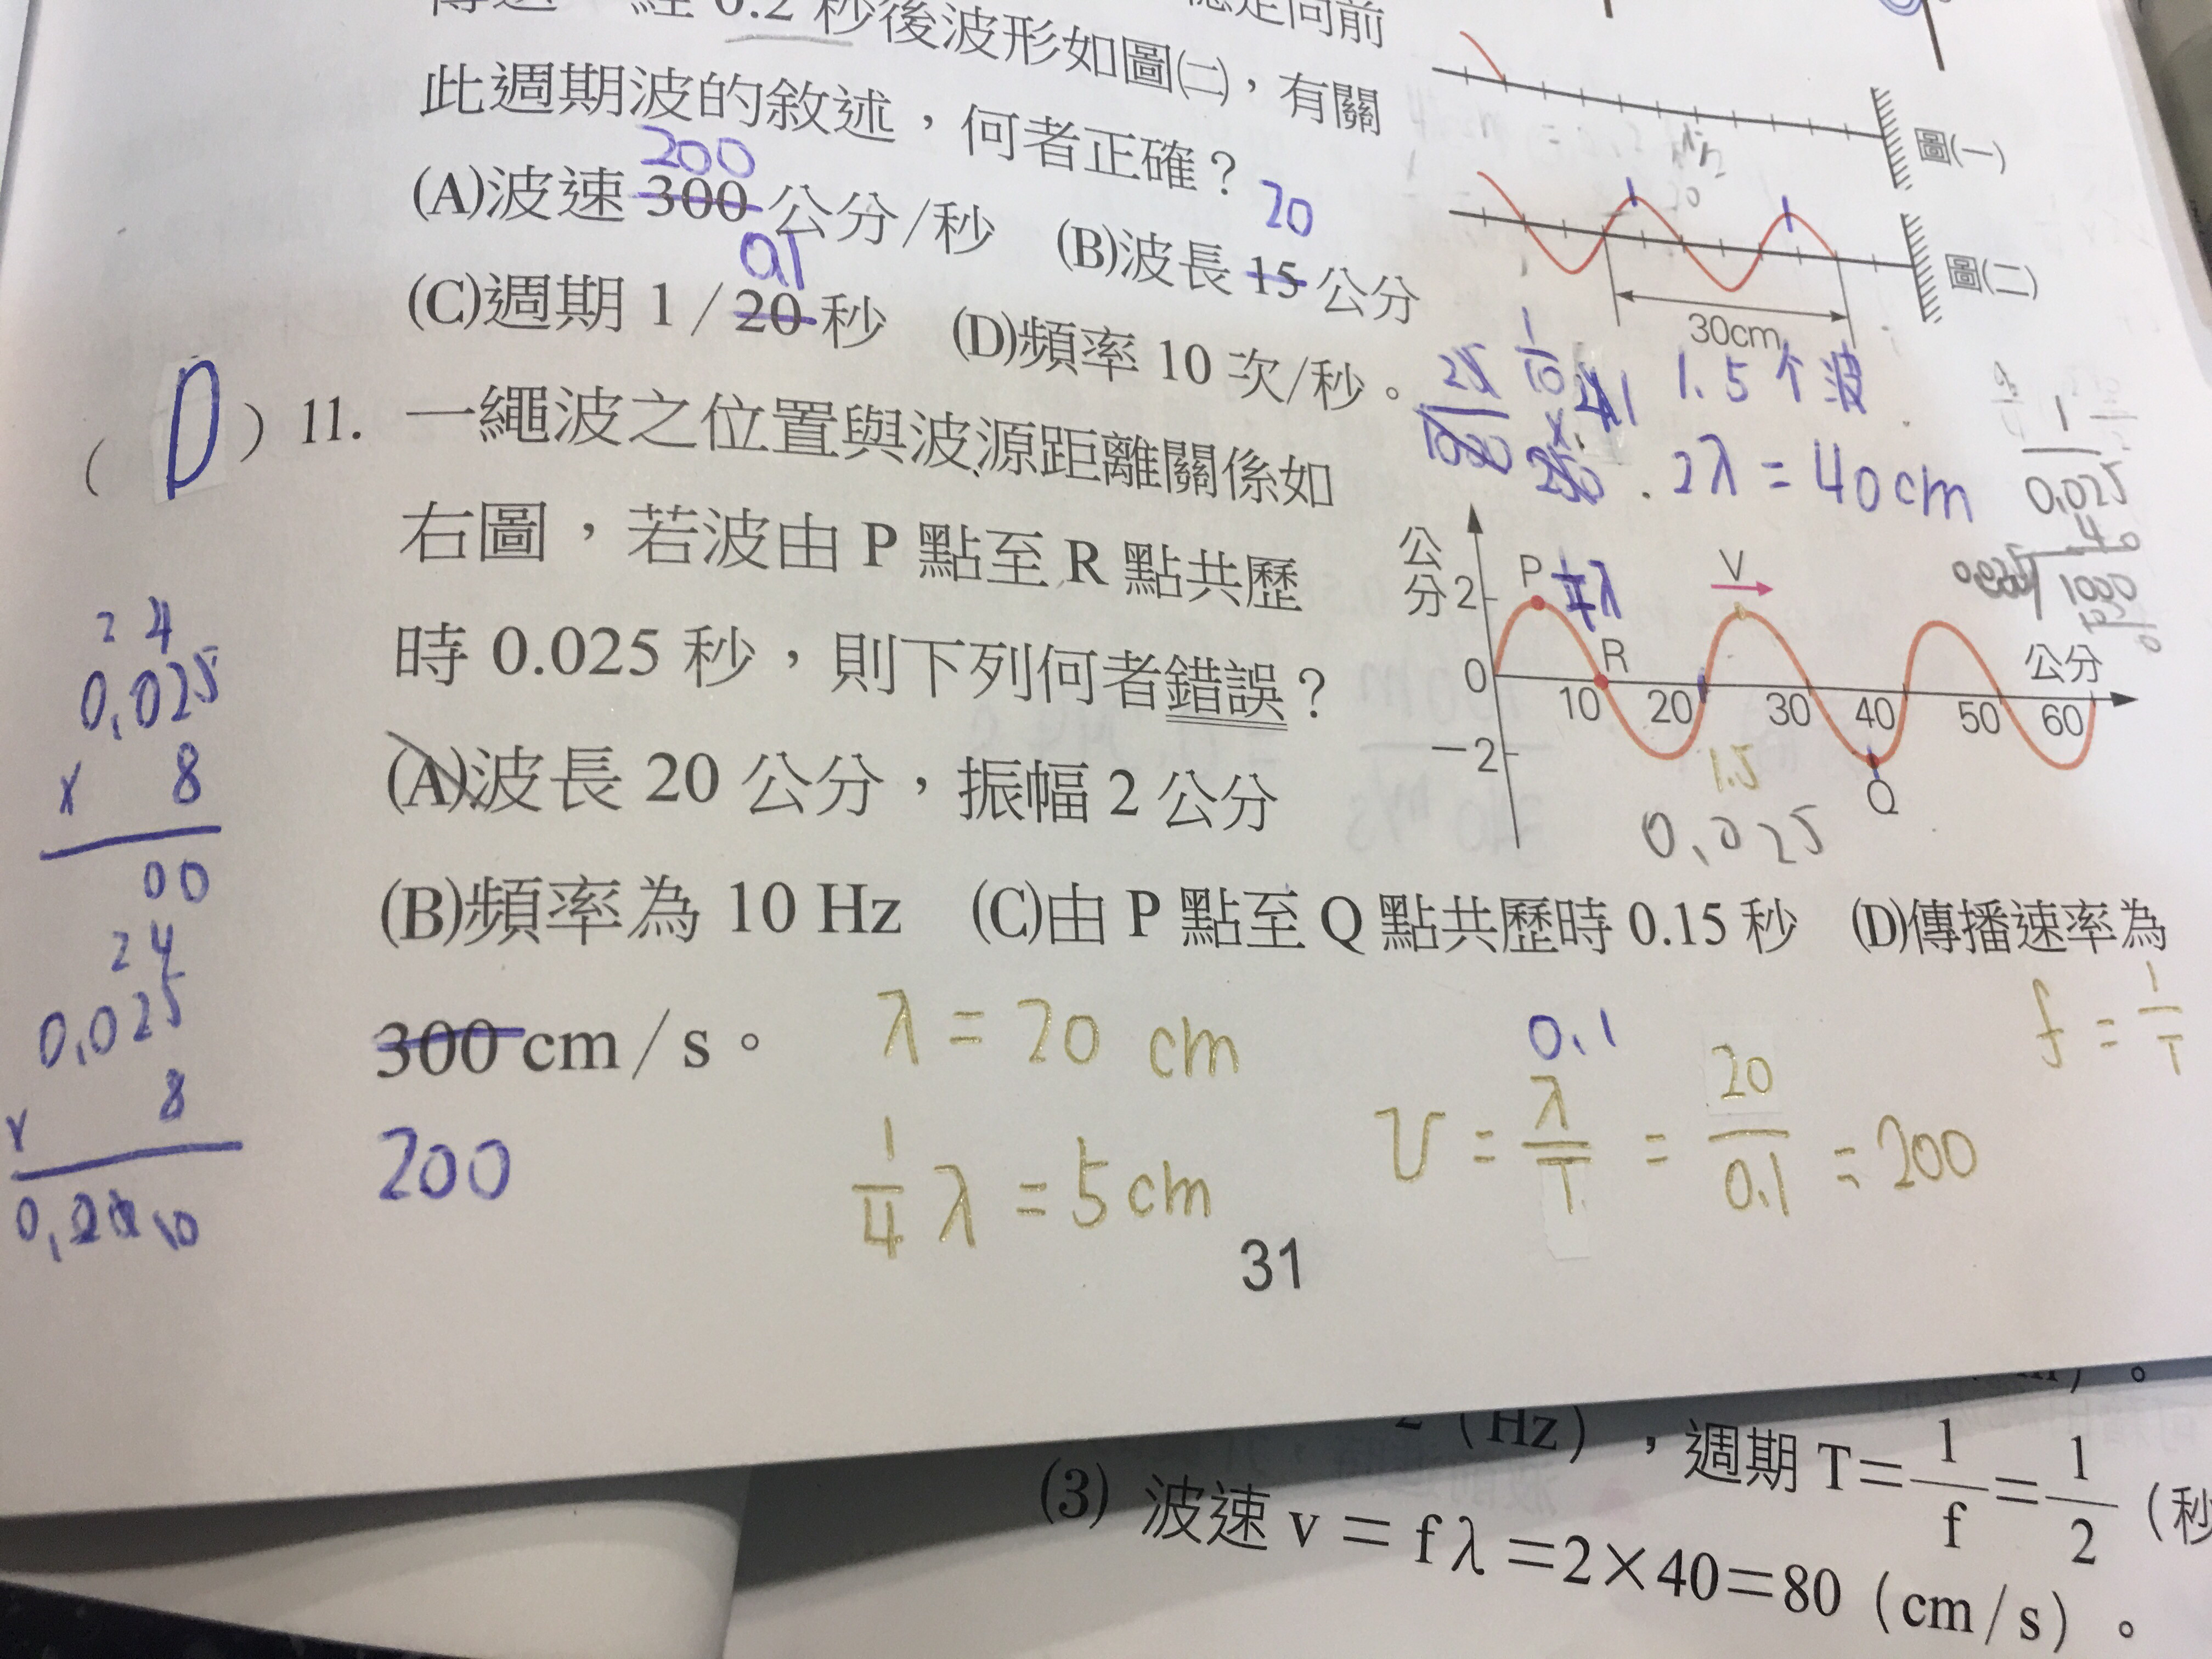 經 0.2 秒後波形如圖㈡，有關
此週期波的敘述，何者正確？
200
(A)波速 300 公分/秒 (B)波長 15 公分
20
0.1
(C)週期 1/20 秒 (D)頻率 10 次/秒。
圖㈠
圖㈡
30cm
1.5 个 波
2λ = 40cm
1
0.025
(D) 11. 一繩波之位置與波源距離關係如
右圖，若波由 P 點至 R 點共歷
時 0.025 秒，則下列何者錯誤？
(A)波長 20 公分，振幅 2 公分
(B)頻率為 10 Hz (C)由 P 點至 Q 點共歷時 0.15 秒 (D)傳播速率為
300 cm/s。
200
公分
2
0
-2
P
V
R
Q
10 20 30 40 50 60
公分
1.5
0.025
2 4
0.025
x 8
00
2 4
0.025
x 8
λ = 20 cm
1/4 λ = 5cm
0.1
v = λ/T = 20/0.1 = 200
f = 1/T
31
2 (Hz)，週期 T=1/f=1/2 (秒
(3) 波速 v = fλ=2×40=80 (cm/s)。